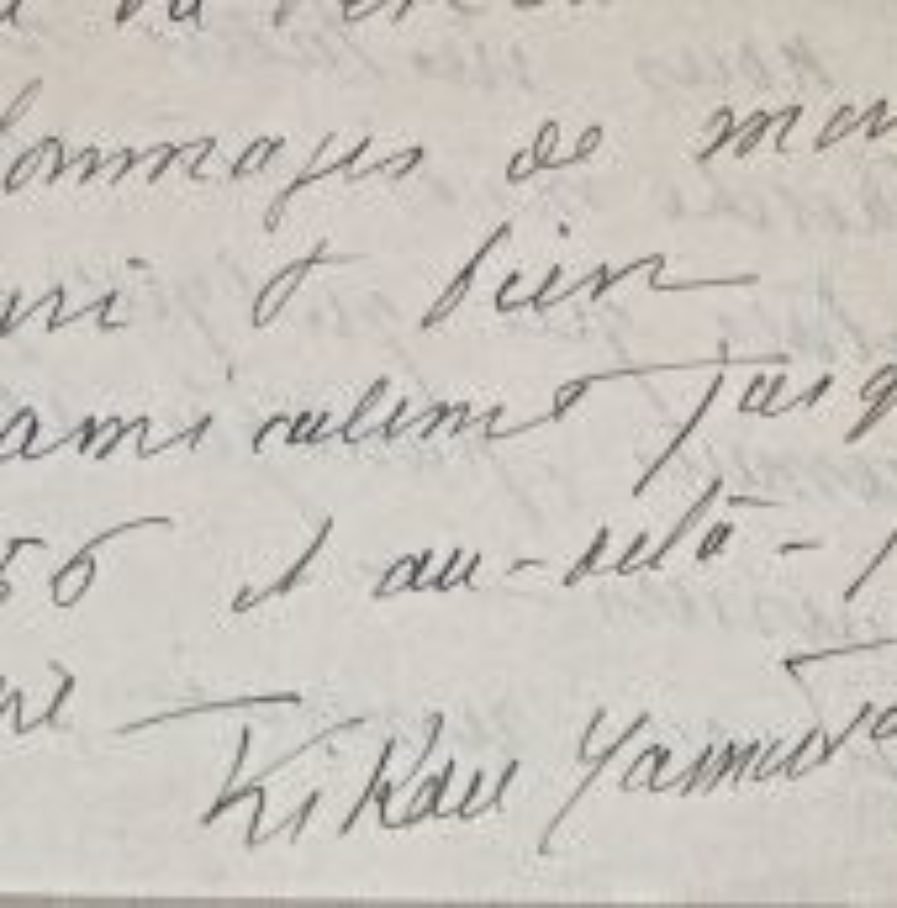 hommages de mon
ari & bien
amicalement jusq
56 et au-delà -
Kikou Yamata